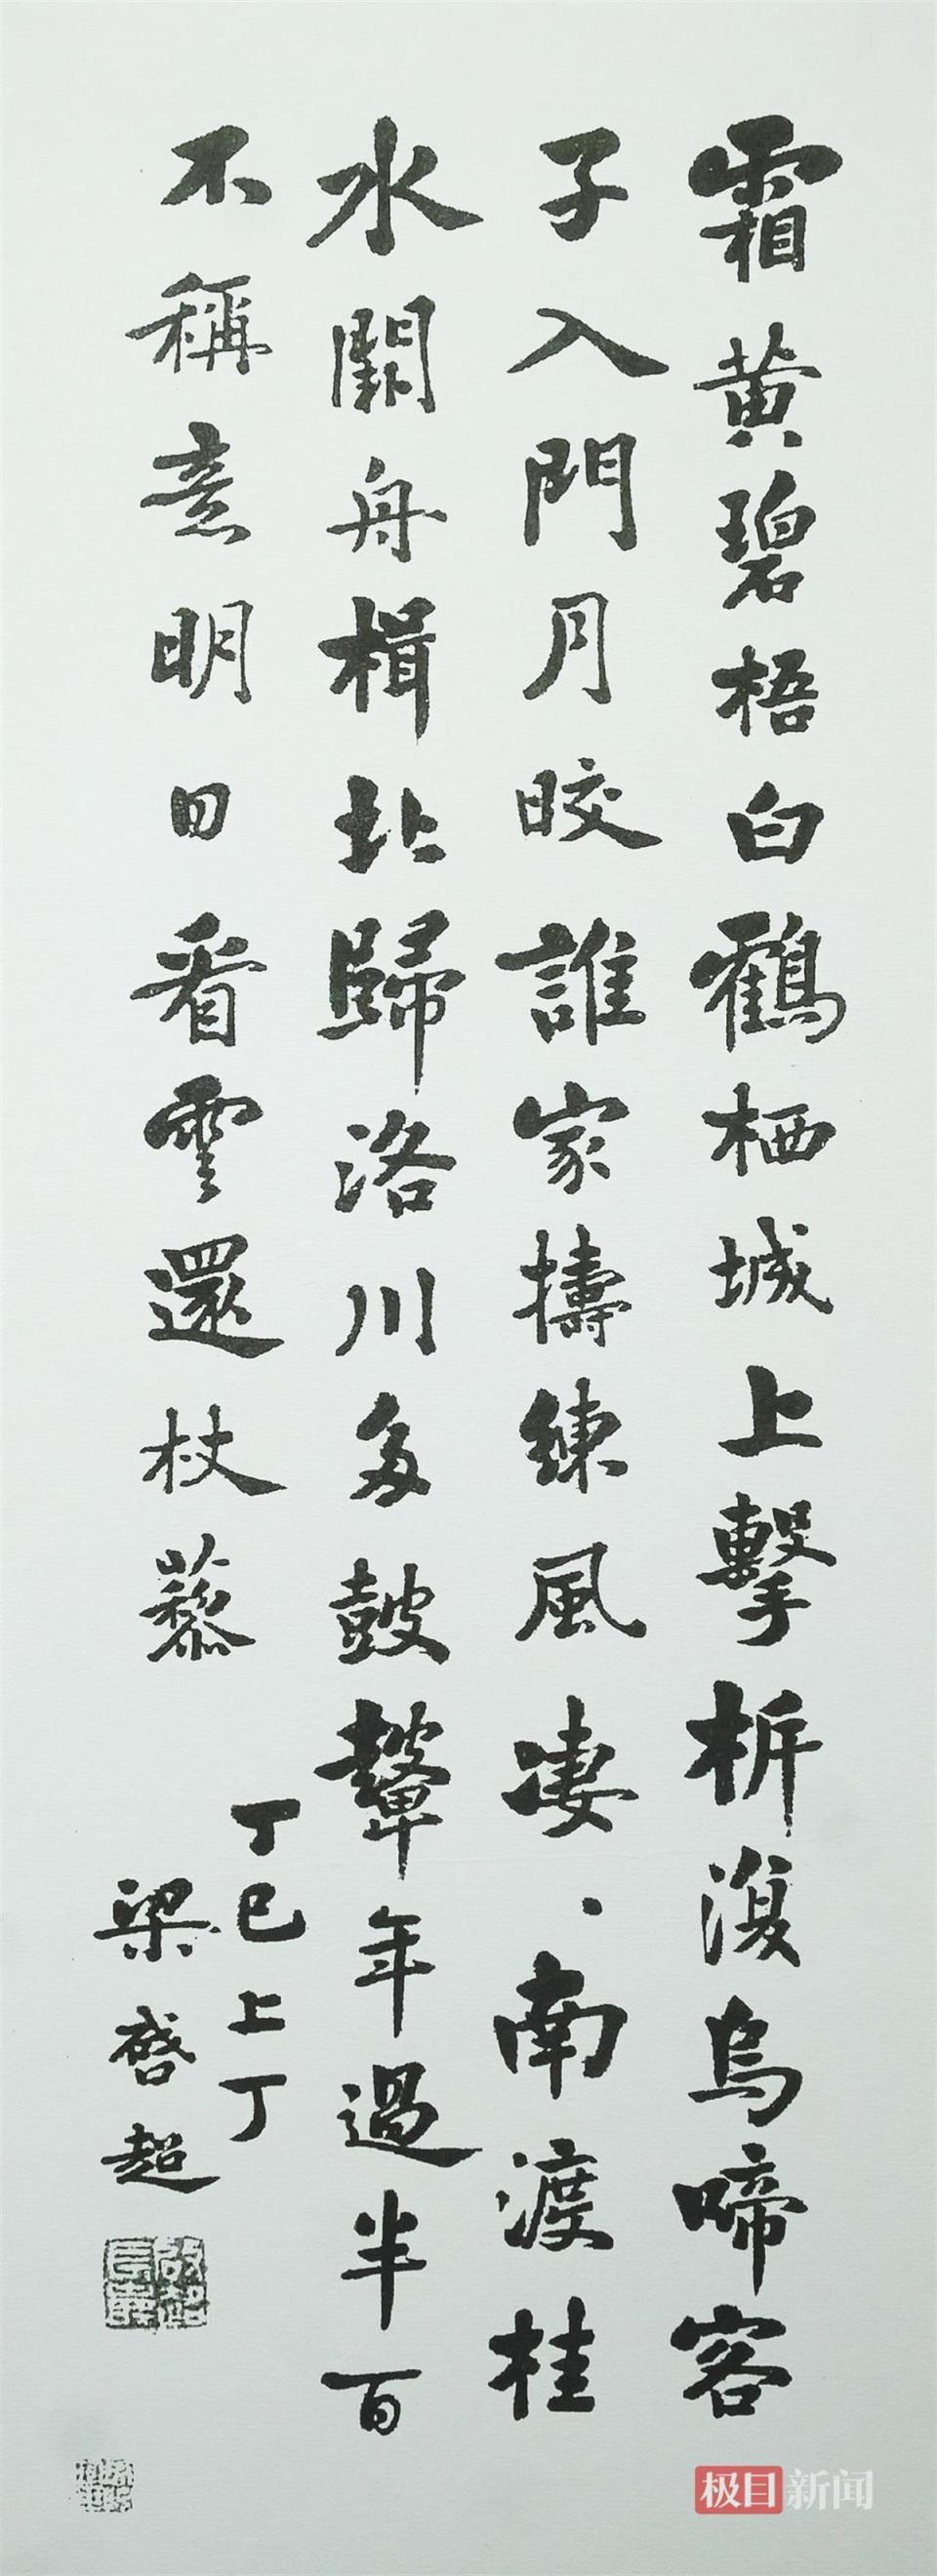 霜黃碧梧白鶴栖城上擊柝復烏啼客
子入門月皎誰家擣練風凄、南渡桂
水闕舟楫北歸洛川多鼓鼙年過半百
不稱意明日看雲還杖藜
丁巳上丁
梁啓超
极目新闻